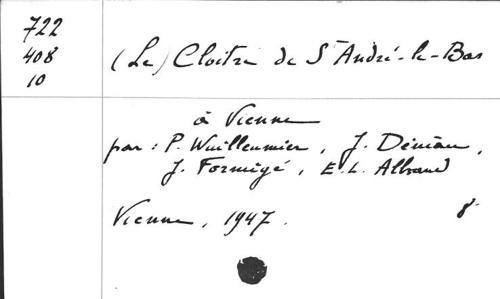 722
408
10
(Le) Cloitre de St André-le-Bas
à Vienne
par : P. Wuilleumier, J. Déniau,
J. Formigé, E.L. Albrand
Vienne, 1947.
8°